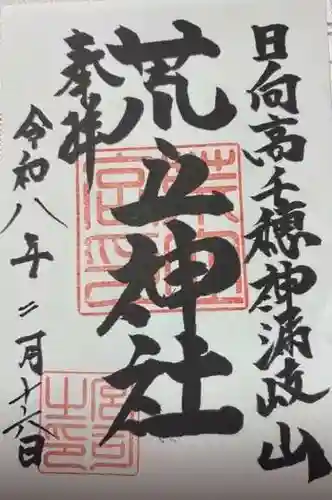 日向高千穂神漏岐山
奉拝
荒立神社
令和八年二月十六日